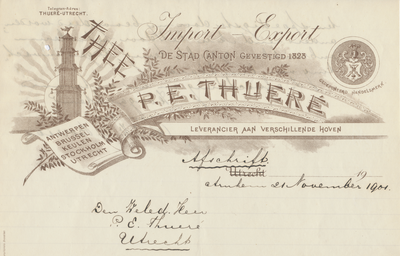 Telegram-Adres:
THUERÉ-UTRECHT.
Import - Export
THEE
DE STAD CANTON GEVESTIGD 1828
P. E. THUERÉ
LEVERANCIER AAN VERSCHILLENDE HOVEN
ANTWERPEN
BRUSSEL
KEULEN
STOCKHOLM
UTRECHT
Afschrift.
Utrecht
21 November 1901.
Den Weled. Heer
P. E. Thueré
Utrecht